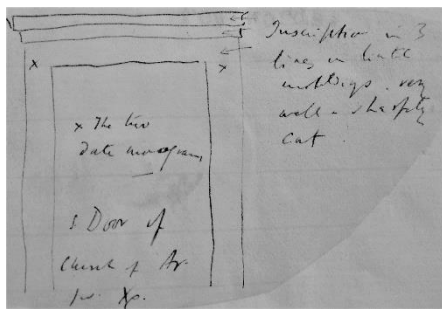 Inscription in 3
lines on lintel
mouldings. very
well & sharply
cut.
x
x
x The two
Date monograms
S Door of
Church of Ar.